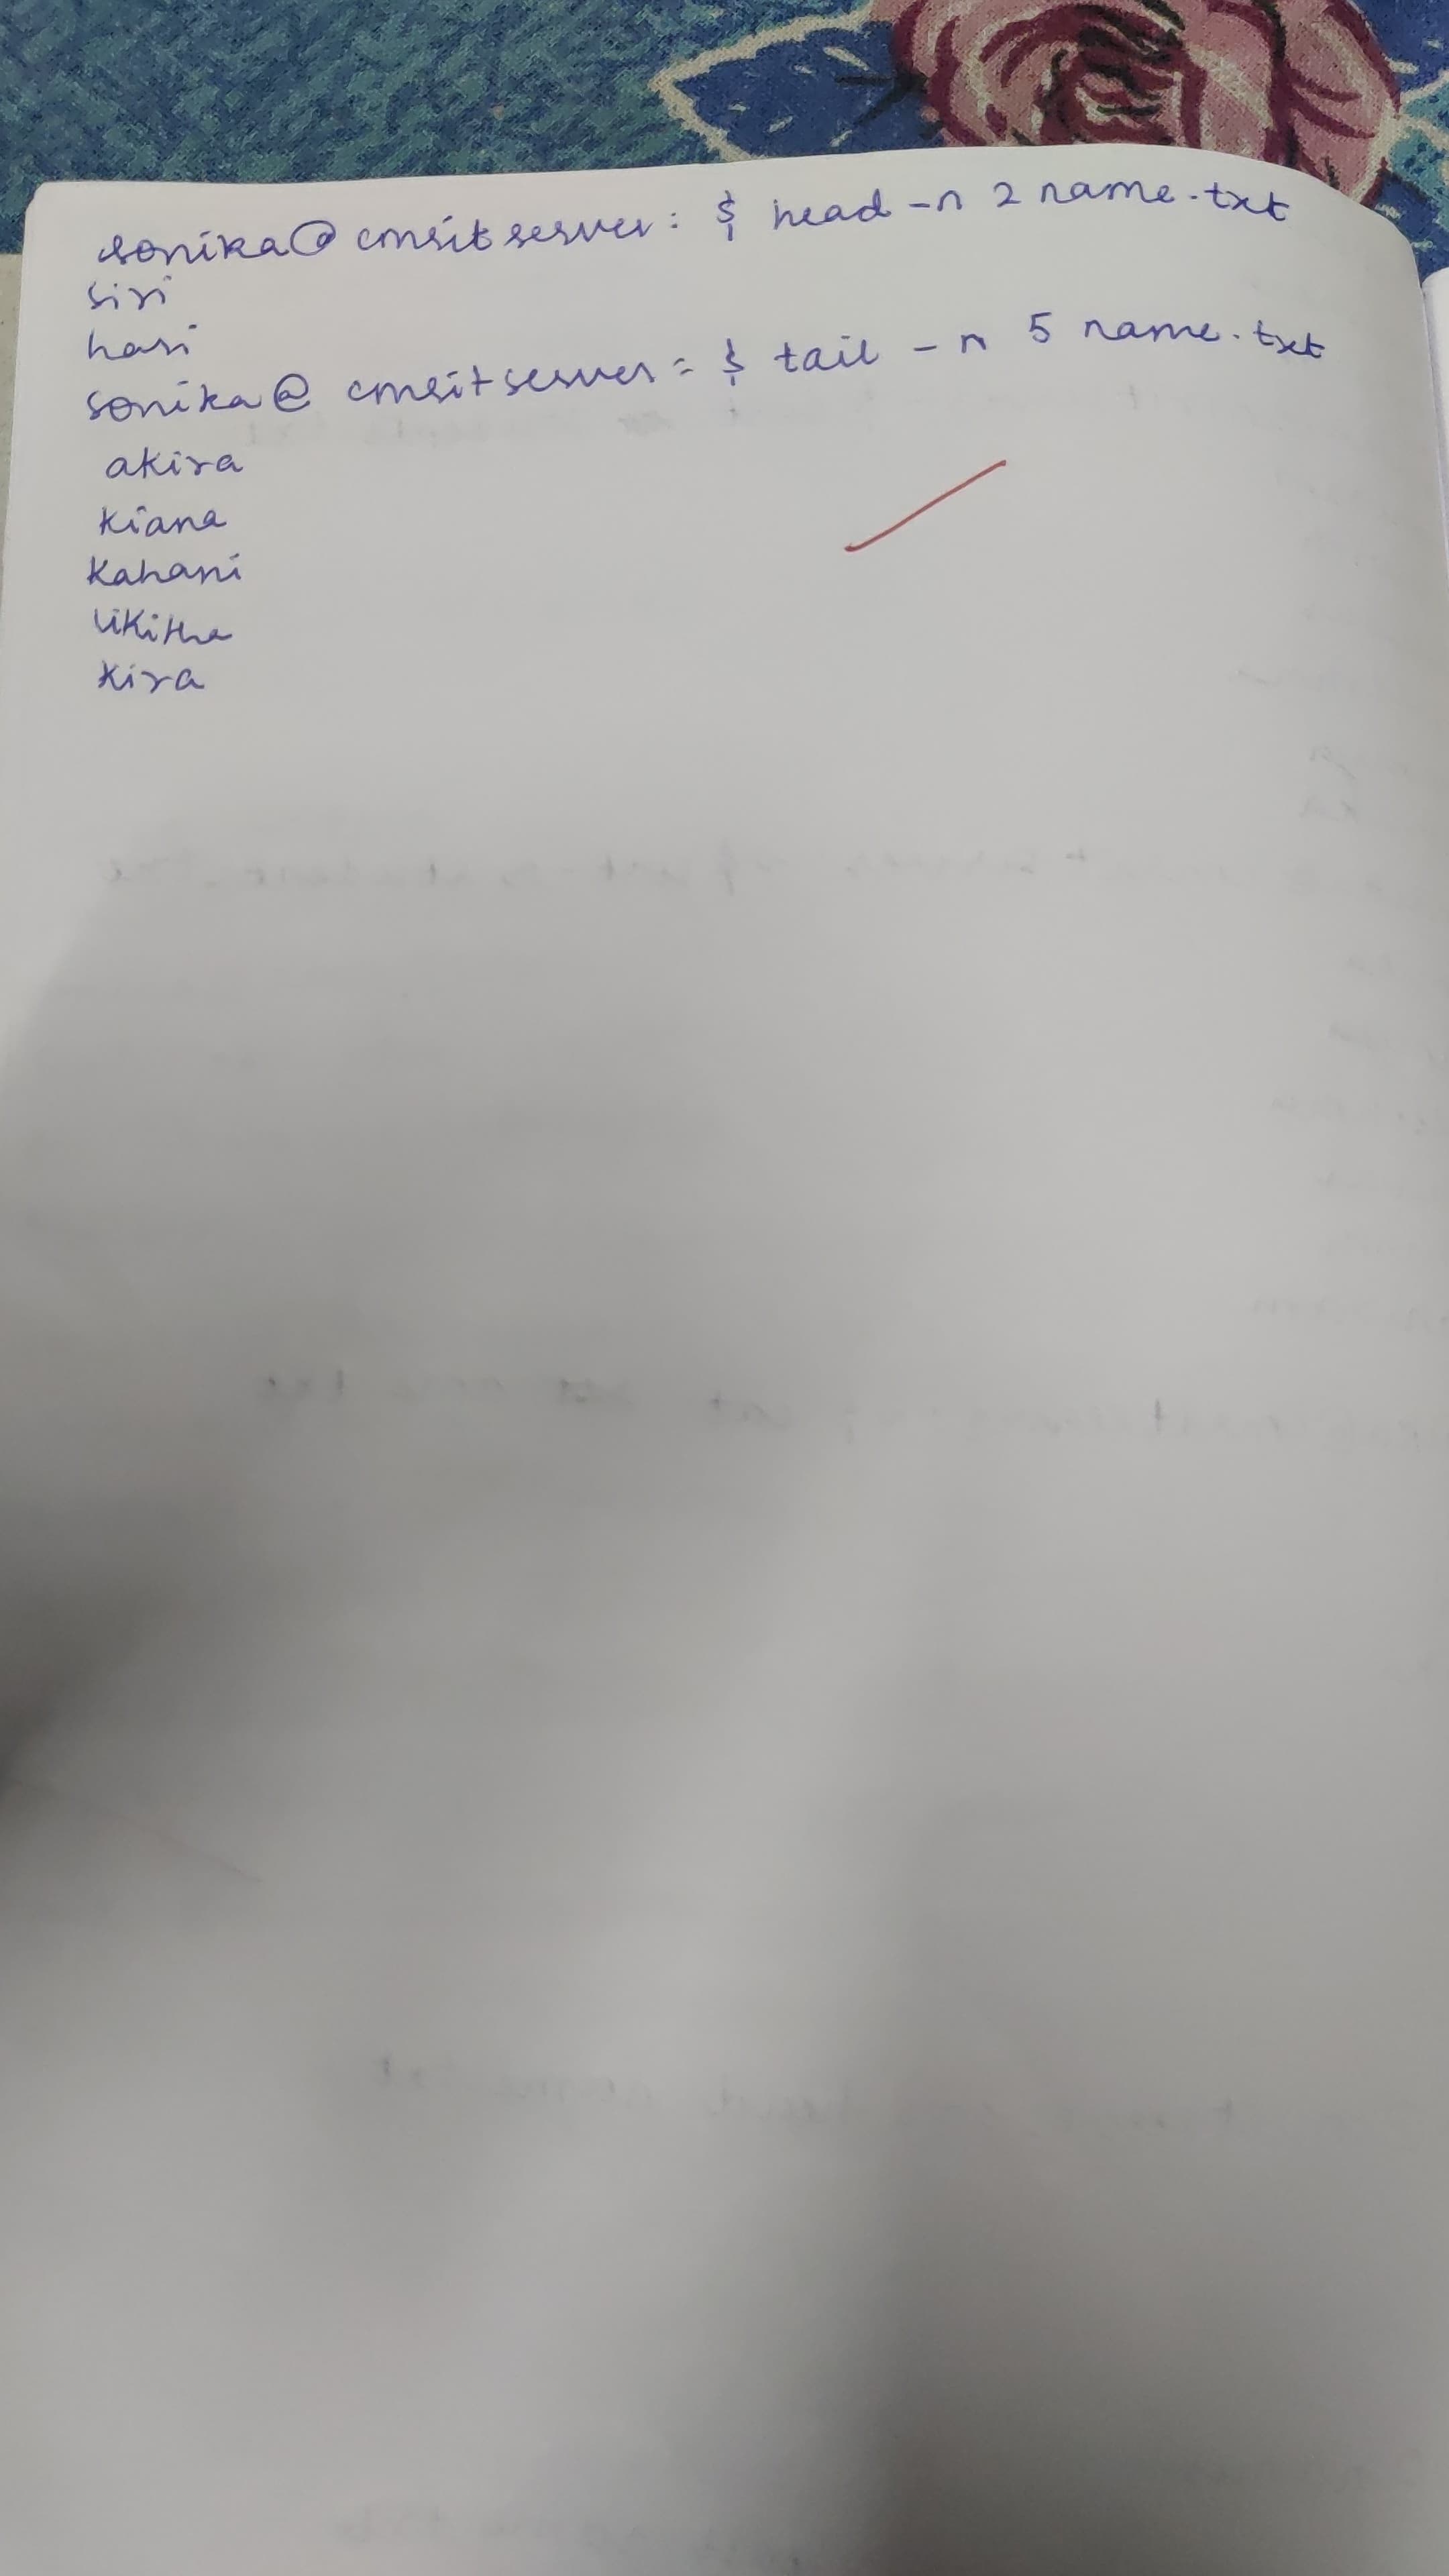 sonika@cmritserver: $ head -n 2 name.txt
siri
hari
sonika@ cmritserver = $ tail - n 5 name.txt
akira
kiana
kahani
likitha
kira